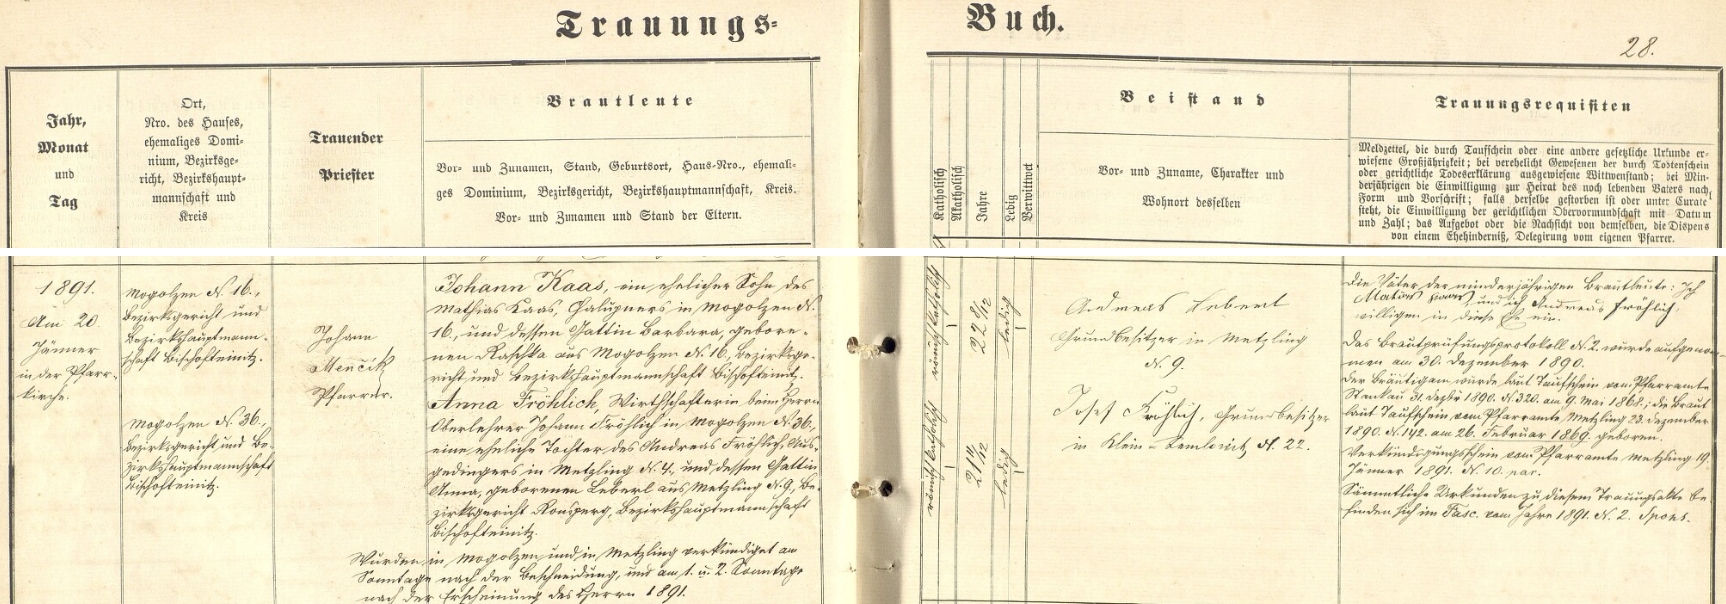 Trauungs-
Buch.
28.
Jahr,
Monat
und
Tag
Ort,
Nro. des Hauses,
ehemaliges Domi-
nium, Bezirksge-
richt, Bezirkshaupt-
mannschaft und
Kreis
Trauender
Priester
Brautleute
Vor- und Zunamen, Stand, Geburtsort, Haus-Nro., ehemali-
ges Dominium, Bezirksgericht, Bezirkshauptmannschaft, Kreis.
Vor- und Zunamen und Stand der Eltern.
Katholisch
Akatholisch
Jahre
Ledig
Verwittwet
Beistand
Vor- und Zuname, Charakter und
Wohnort desselben
Trauungsrequisiten
Meldzettel, die durch Taufschein oder eine andere gesetzliche Urkunde er-
wiesene Großjährigkeit; bei verehelicht Gewesenen der durch Todtenschein
oder gerichtliche Todeserklärung ausgewiesene Wittwenstand; bei Min-
derjährigen die Einwilligung zur Heirat des noch lebenden Vaters nach
Form und Vorschrift; falls derselbe gestorben ist oder unter Curate
steht, die Einwilligung der gerichtlichen Obervormundschaft mit Datum
und Zahl; das Aufgebot oder die Nachsicht von demselben, die Dispens
von einem Ehehinderniß, Delegirung vom eigenen Pfarrer.
1891.
Am 20.
Jänner
in der Pfarr-
kirche.
Mogolzen N. 16.,
Bezirksgericht und
Bezirkshauptmann-
schaft Bischofteinitz.
Mogolzen N. 36.,
Bezirksgericht und Be-
zirkshauptmannschaft
Bischofteinitz.
Johann
Menčik
Pfarrer.
Johann Kaas, ein ehelicher Sohn des
Mathias Kaas, Chalupners in Mogolzen N.
16, und dessen Gattin Barbara, gebore-
nen Raschka aus Mogolzen N. 16, Bezirksge-
richt und Bezirkshauptmannschaft Bischofteinitz.
Anna Fröhlich, Wirthschafterin beim Herrn
Oberlehrer Johann Fröhlich in Mogolzen N. 36,
eine eheliche Tochter des Andreas Fröhlich, Aus-
gedingers in Metzling N. 4, und dessen Gattin
Anna, geborenen Leberl aus Metzling N. 9, Be-
zirksgericht Ronsperg, Bezirkshauptmannschaft
Bischofteinitz.
Wurden in Mogolzen und in Metzling verkündiget am
Sonntage nach der Beschneidung, und am 1. u. 2. Sonntage
nach der Erscheinung des Herrn 1891.
römisch katholisch
22 8/12
ledig
römisch katholisch
21 11/12
ledig
Andreas Leberl
Grundbesitzer in Metzling
N. 9.
Josef Fröhlich, Grundbesitzer
in Klein-Semlowitz N. 22.
Die Väter der minderjährigen Brautleute: Ich
Matias Kaas, und ich Andreas Fröhlich,
willigen in diese Ehe ein.
Das Brautprüfungsprotokoll N. 2. wurde aufgenom-
men am 30. Dezember 1890.
Der Bräutigam wurde laut Taufschein vom Pfarramte
Stankau 31. Dezbr 1890. N. 320. am 9. Mai 1868.; die Braut
laut Taufschein vom Pfarramte Metzling 23. Dezember
1890. N. 142. am 26. Februar 1869. geboren.
Verkündigungsschein vom Pfarramte Metzling 19.
Jänner 1891. N. 10. par.
Sämmtliche Urkunden zu diesem Trauungsakte be-
finden sich im Fasc. vom Jahre 1891. N. 2. Spons.